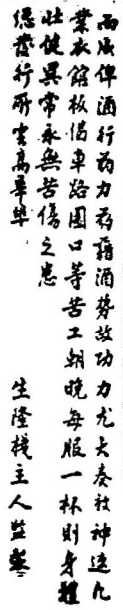 而成俾酒行药力药藉酒势故功力尤大奏效神速凡
業衣館板倡車路围口等苦工朝晚每服一杯則身體
壯健異常永無苦傷之患
總發行所雲高華埠
生隆棧主人監製